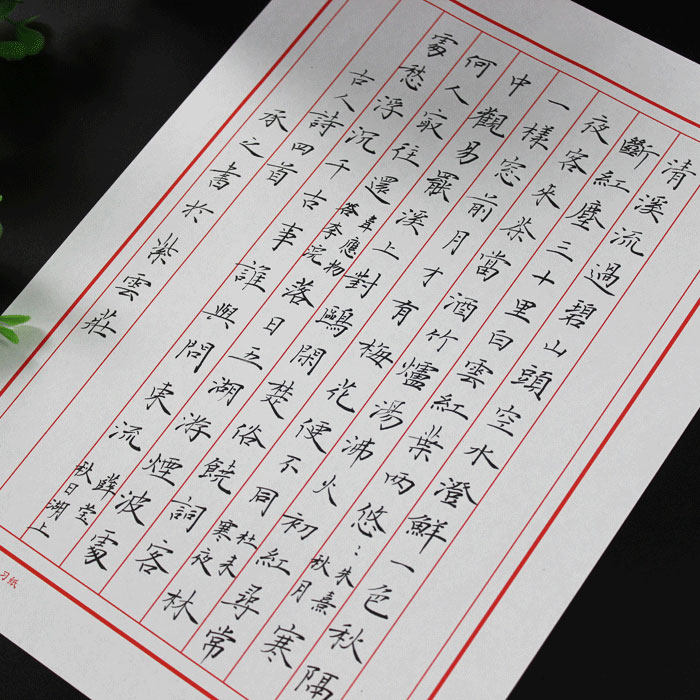 清溪流過碧山頭空水澄鮮一色秋隔
斷紅塵三十里白雲紅葉兩悠:朱熹秋月寒
夜客來茶當酒竹爐湯沸火初紅尋常
一樣窓前月才有梅花便不同杜耒寒夜林
中觀易罷溪上對鷗閑楚俗饒詞客
何人冣往還韋應物答李浣落日五湖游煙波處
處愁浮沉千古事誰與問東流薛瑩秋日湖上
古人詩四首
承之書於紫雲莊
习纸